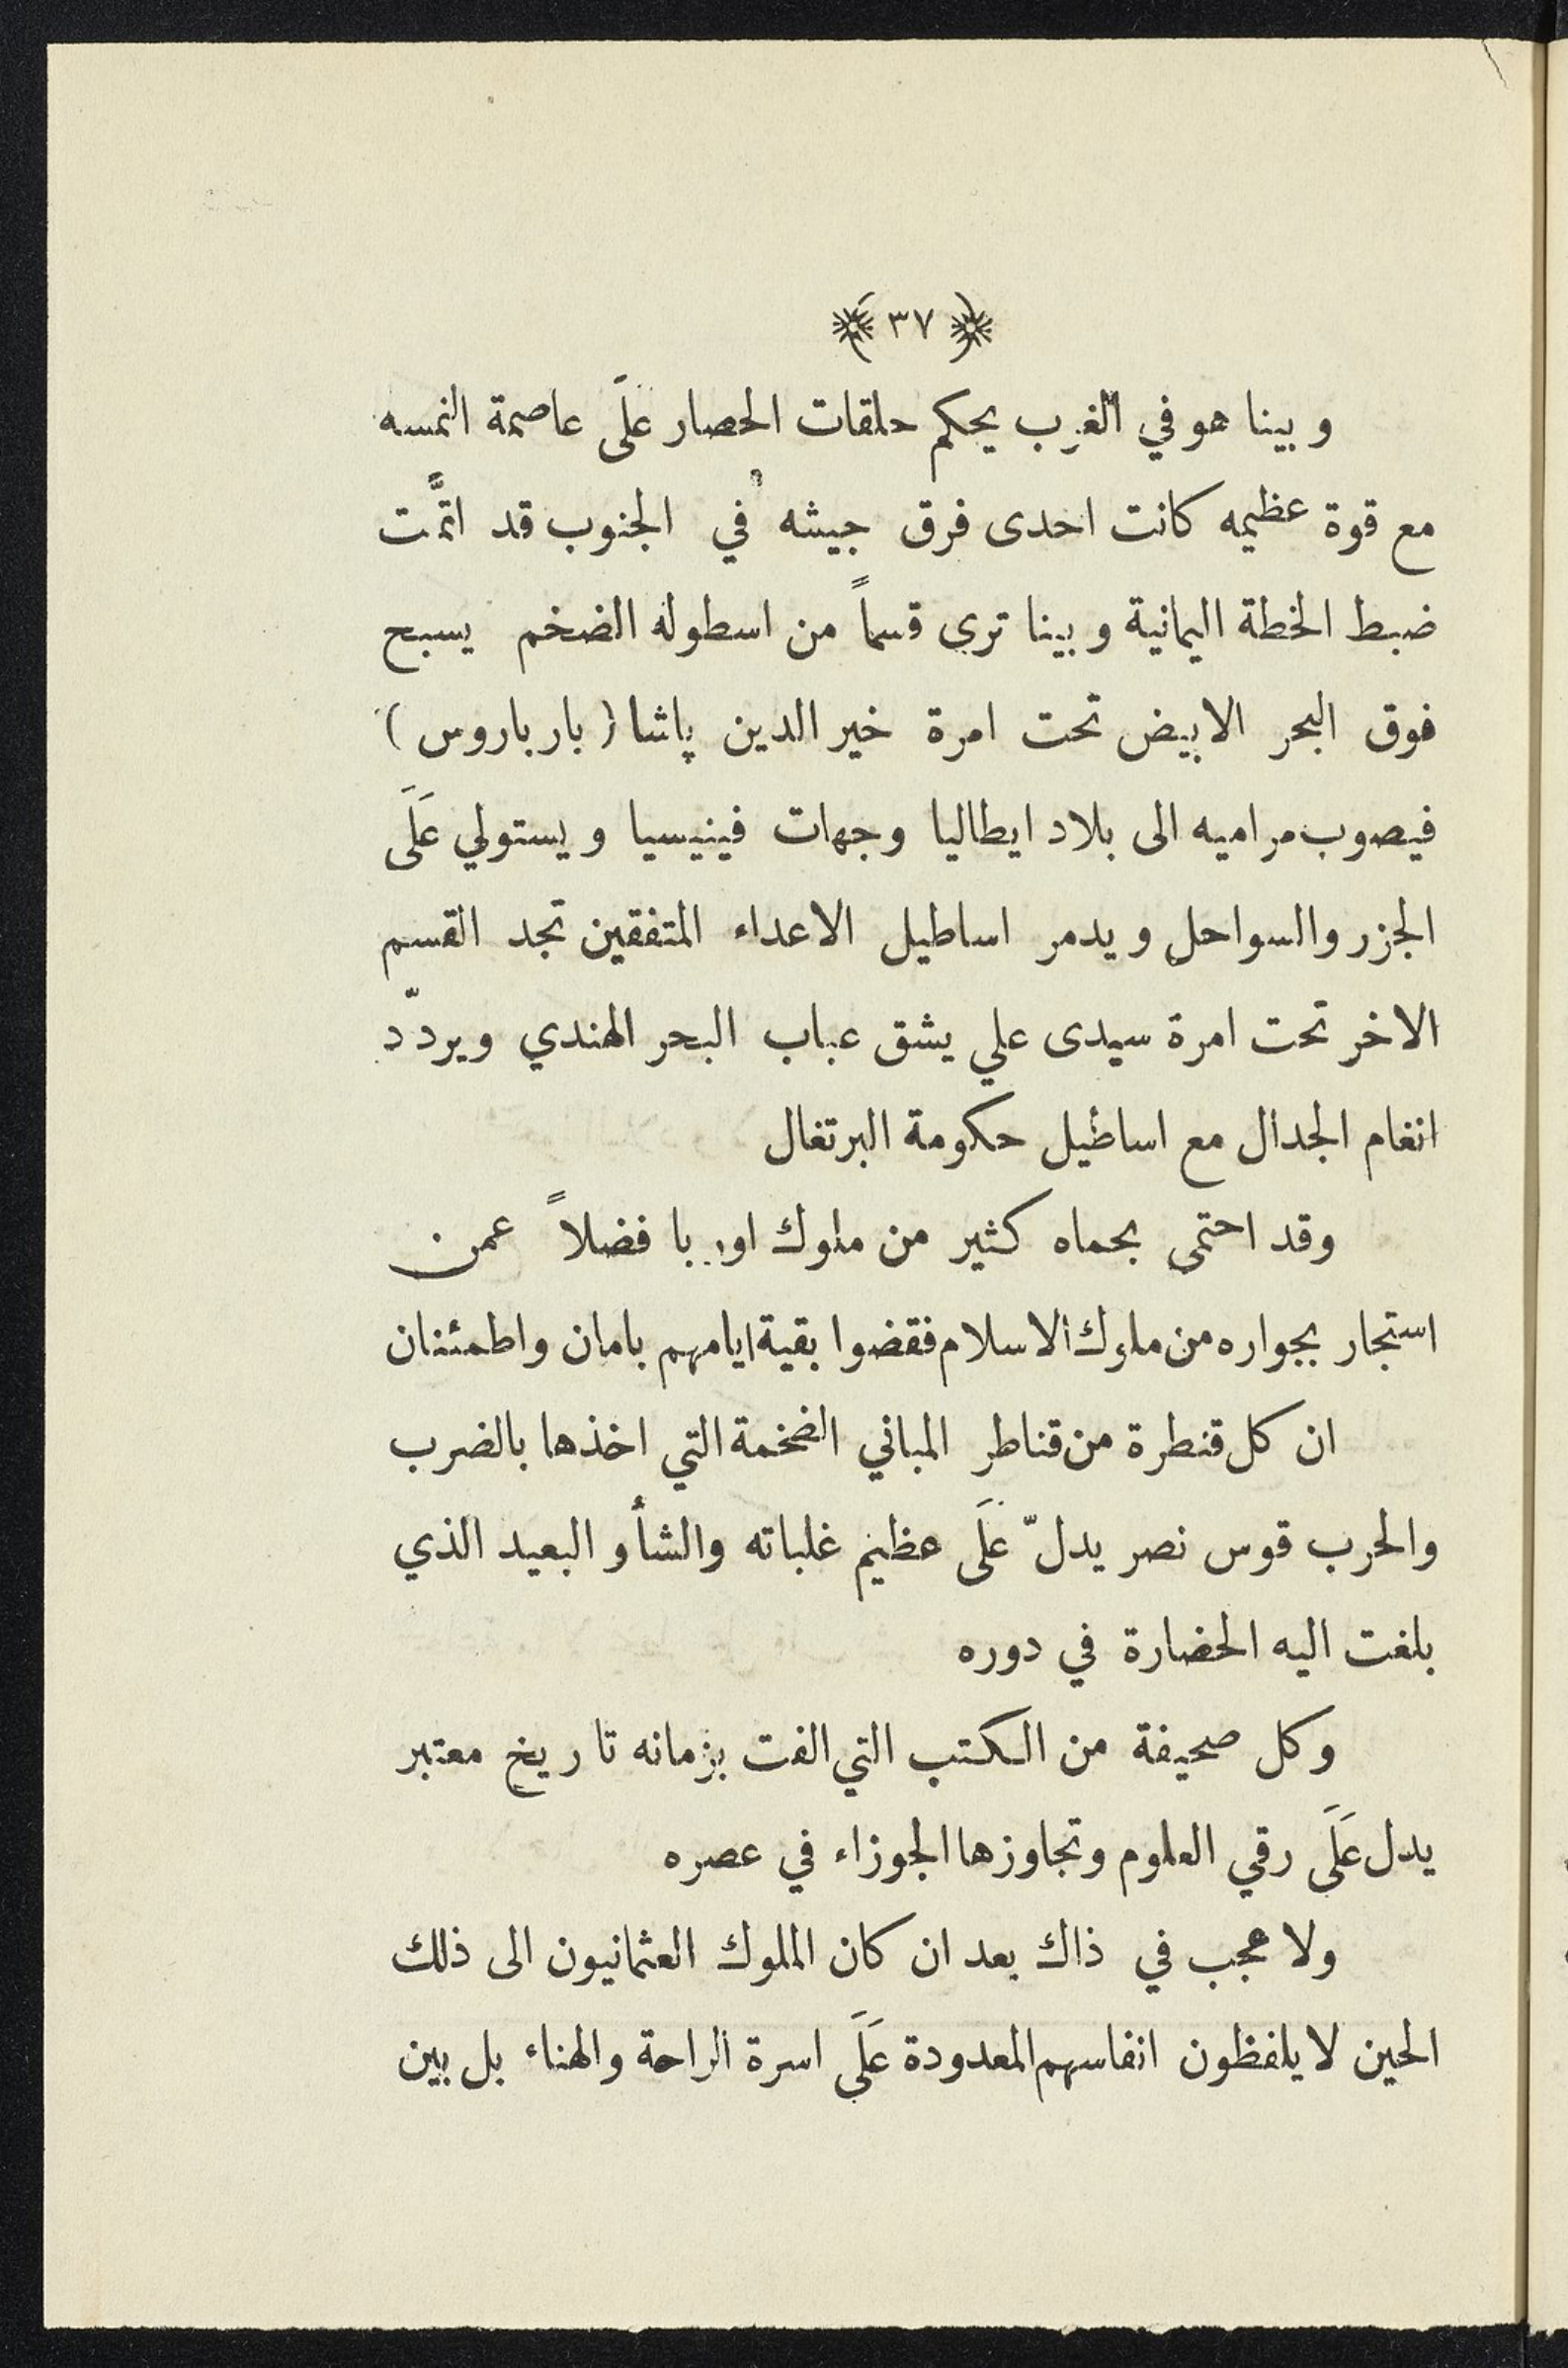 ﴿ ٣٧ ﴾
وبينا هو في الغرب يحكم حلقات الحصار علَى عاصمة النمسه
مع قوة عظيمه كانت احدى فرق جيشه في الجنوب قد اتمَّت
ضبط الخطة اليمانية وبينا ترى قسماً من اسطوله الضخم يسبح
فوق البحر الابيض تحت امرة خير الدين پاشا (بارباروس)
فيصوب مراميه الى بلاد ايطاليا وجهات فينيسيا ويستولي عَلَى
الجزر والسواحل ويدمر اساطيل الاعداء المتفقين تجد القسم
الاخر تحت امرة سيدى علي يشق عباب البحر الهندي ويردّد
انغام الجدال مع اساطيل حكومة البرتغال
وقد احتمى بحماه كثير من ملوك اوربا فضلاً عمن
استجار بجواره من ملوك الاسلام فقضوا بقية ايامهم بامان واطمئنان
ان كل قنطرة من قناطر المباني الضخمة التي اخذها بالضرب
والحرب قوس نصر يدلّ علَى عظيم غلباته والشأو البعيد الذي
بلغت اليه الحضارة في دوره
وكل صحيفة من الكتب التي الفت بزمانه تاريخ معتبر
يدل عَلَى رقي العلوم وتجاوزها الجوزاء في عصره
ولا عجب في ذاك بعد ان كان الملوك العثمانيون الى ذلك
الحين لا يلفظون انفاسهم المعدودة عَلَى اسرة الراحة والهناء بل بين